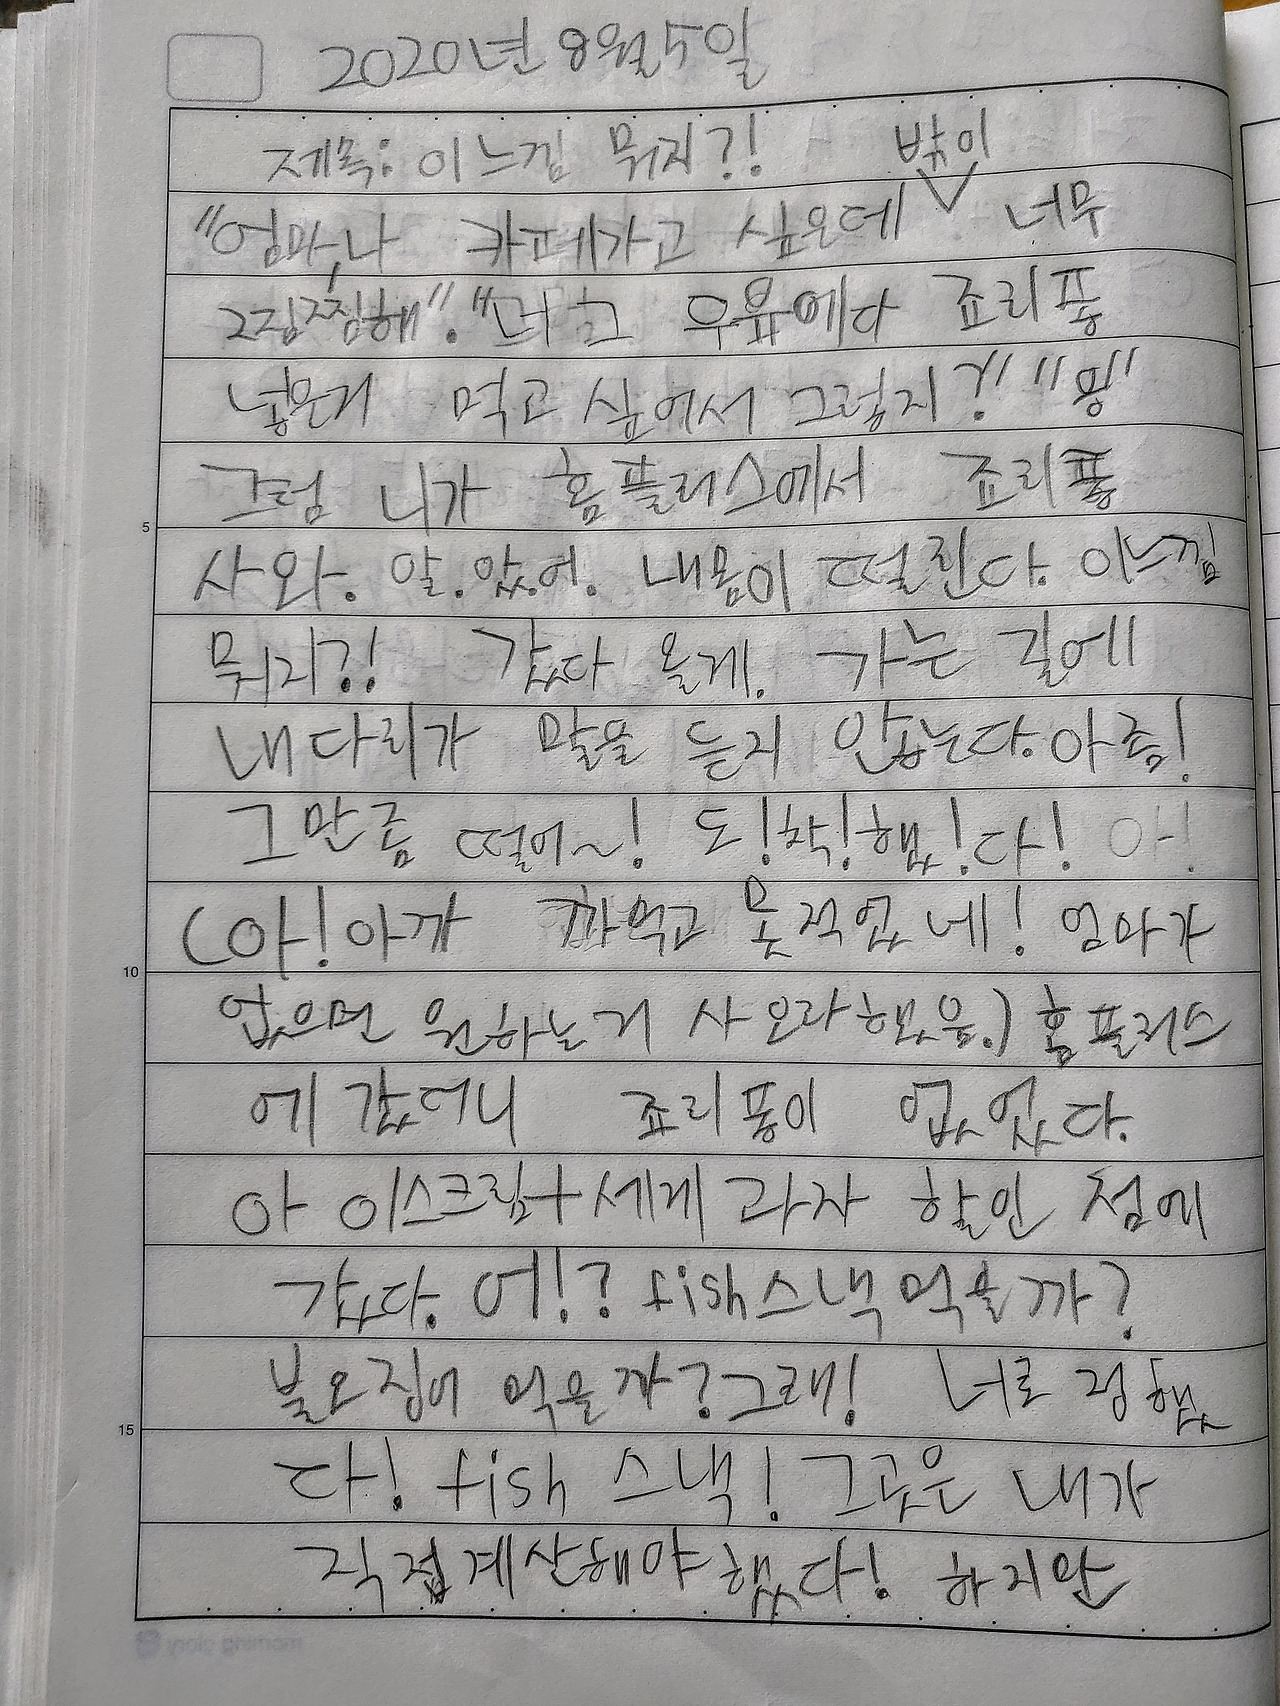 2020년 8월 5일
제목: 이느낌 뭐지?!
밖이
"엄마,나 카페가고 싶은데 너무
찜찜해". "너 그 우유에다 죠리퐁
넣은거 먹고 싶어서 그렇지?" "응"
그럼 니가 홈플러스에서 죠리퐁
사와. 알.았.어. 내몸이 떨린다. 이느낌
뭐지?! 갔다 올게. 가는 길에
내다리가 말을 듣지 안는다. 아 좀!
그만좀 떨어~! 도!착!했!다! 아!
(아!아까 까먹고 못적었네! 엄마가
없으면 원하는거 사 오라했음.) 홈플러스
에 갔더니 죠리퐁이 없었다.
아 이스크림+세계 과자 할인 점에
갔다. 어!? fish스낵 먹을까?
불오징어 먹을까?그래! 너로 정했
다! fish 스낵! 그곳은 내가
직접계산해야 했다! 하지만
5
10
15
morning glory